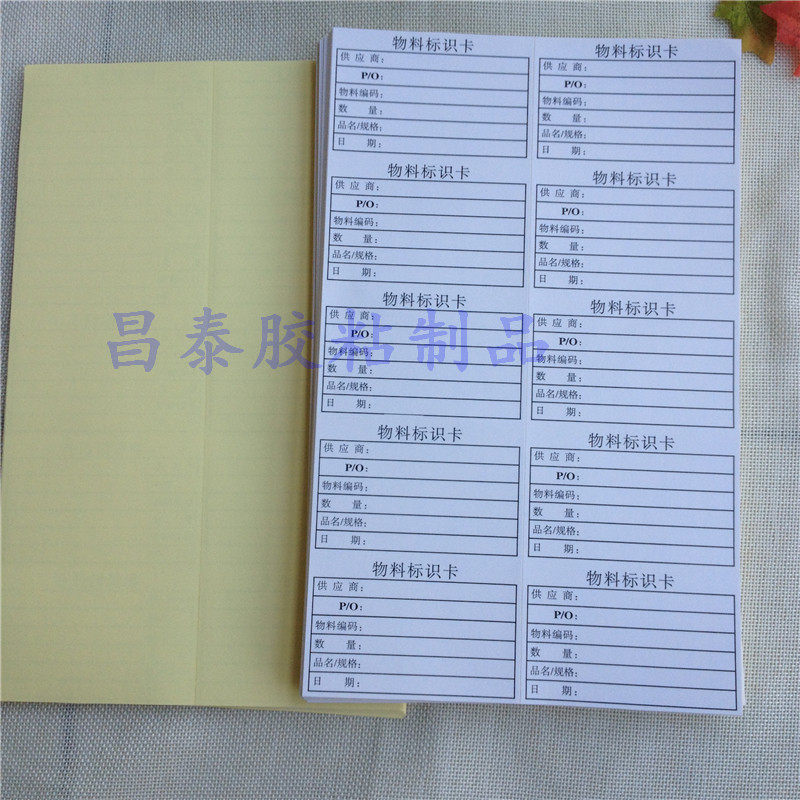 物料标识卡
供 应 商：
P/O：
物料编码：
数 量：
品名/规格：
日 期：
物料标识卡
供 应 商：
P/O：
物料编码：
数 量：
品名/规格：
日 期：
物料标识卡
供 应 商：
P/O：
物料编码：
数 量：
品名/规格：
日 期：
物料标识卡
供 应 商：
P/O：
物料编码：
数 量：
品名/规格：
日 期：
物料标识卡
供 应 商：
P/O：
物料编码：
数 量：
品名/规格：
日 期：
物料标识卡
供 应 商：
P/O：
物料编码：
数 量：
品名/规格：
日 期：
昌泰胶粘制品
物料标识卡
供 应 商：
P/O：
物料编码：
数 量：
品名/规格：
日 期：
物料标识卡
供 应 商：
P/O：
物料编码：
数 量：
品名/规格：
日 期：
物料标识卡
供 应 商：
P/O：
物料编码：
数 量：
品名/规格：
日 期：
物料标识卡
供 应 商：
P/O：
物料编码：
数 量：
品名/规格：
日 期：